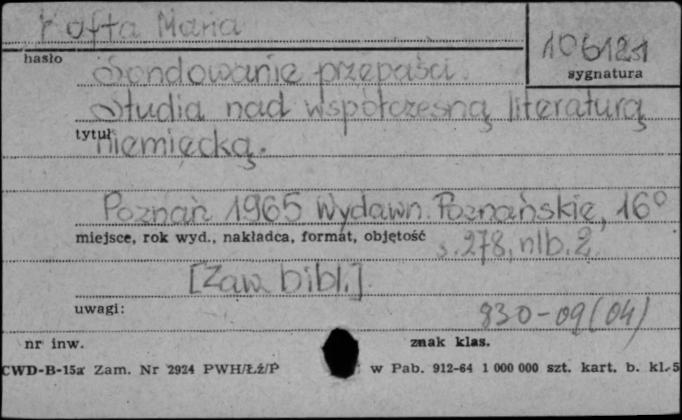 Kofta Maria
hasło
106121
sygnatura
Sondowanie przepaści.
Studia nad współczesną literaturą
tytuł
niemiecką.
Poznań 1965 Wydawn. Poznańskie, 16°
miejsce, rok wyd., nakładca, format, objętość
s. 278, nlb. 2
[Zaw. bibl.]
uwagi:
830-09(04)
nr inw.
znak klas.
CWD-B-15a Zam. Nr 2924 PWH/Łź/P
w Pab. 912-64 1 000 000 szt. kart. b. kl. 5